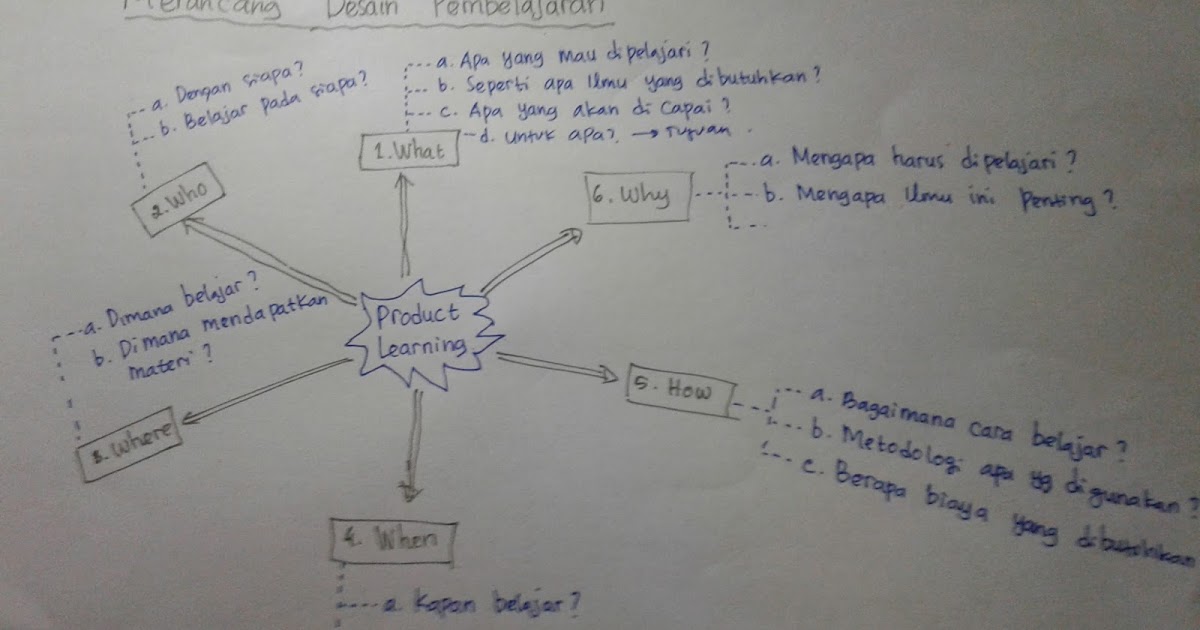 Merancang Desain Pembelajaran
a. Dengan siapa?
b. Belajar pada siapa?
2. Who
a. Apa yang mau dipelajari?
b. Seperti apa Ilmu yang dibutuhkan?
c. Apa yang akan di Capai?
d. Untuk apa? → Tujuan.
1. What
6. Why
a. Mengapa harus dipelajari?
b. Mengapa Ilmu ini Penting?
Product
Learning
a. Dimana belajar?
b. Dimana mendapatkan
materi?
3. Where
5. How
a. Bagaimana cara belajar?
b. Metodologi apa yg digunakan?
c. Berapa biaya yang dibutuhkan
4. When
a. Kapan belajar?